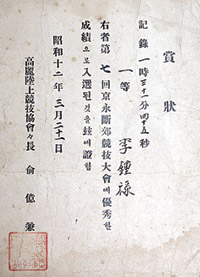 賞狀
記錄 一時三十一分四十五秒
一等 李鍾祿
右者第七回京永斷郊競技大會에優秀한
成績으로入選된것을玆에證함
昭和十二年 三月二十一日
高麗陸上競技協會々長 兪億兼